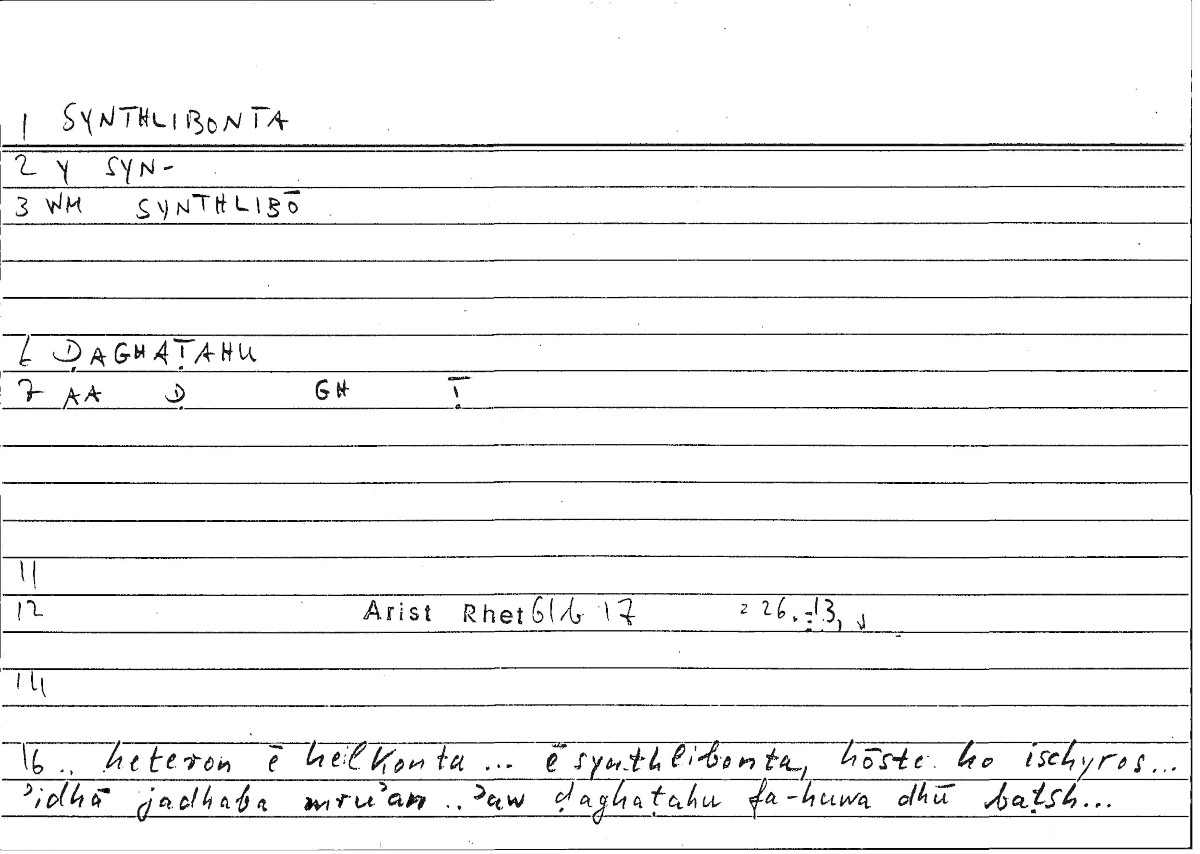 1 SYNTHLIBONTA
2 Y SYN-
3 WM SYNTHLIBŌ
6 ḌAGHAṬAHU
7 AA Ḍ GH Ṭ
11
12 Arist Rhet 61b 17 = 26, 13,
14
16 .. heteron ē helkonta ... ē synthlibonta, hōste ho ischyros...
ʾidhā jadhaba mruʾan .. ʾaw ḍaghaṭahu fa-huwa dhū baṭsh...